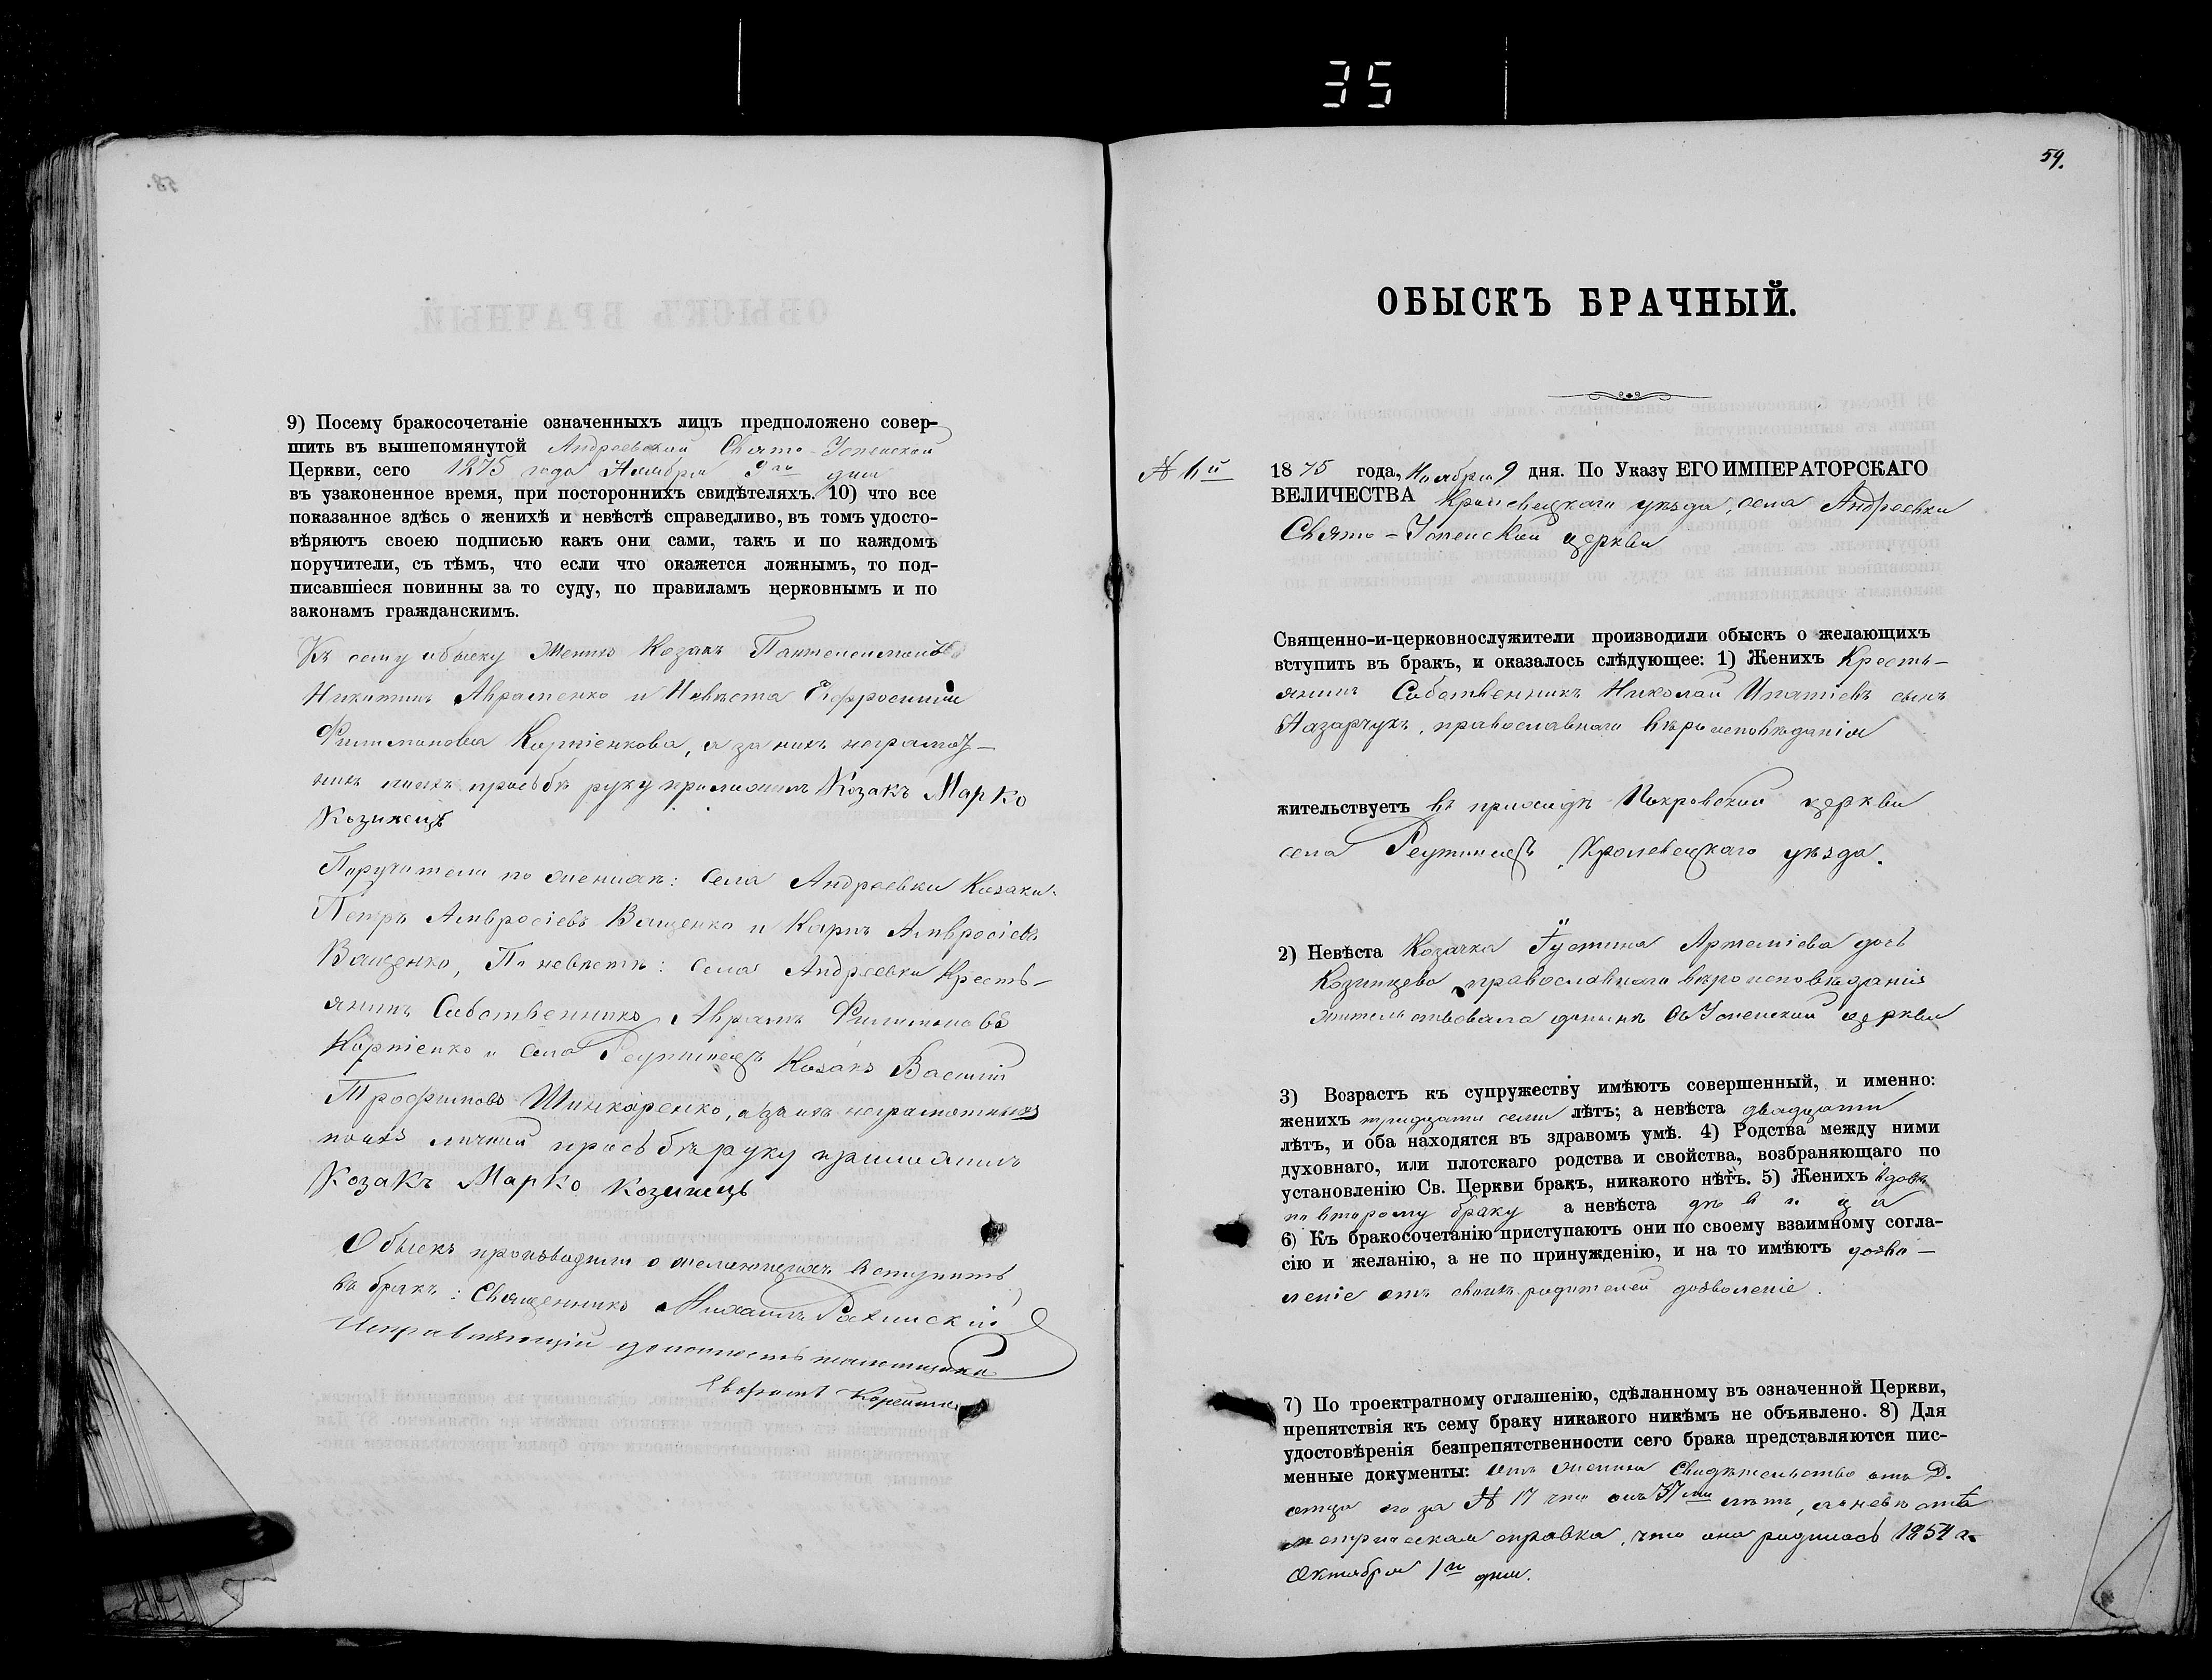 35
9) Посему бракосочетаніе означенныхъ лицъ предположено совер-
шить въ вышепомянутой Андреевской Свято-Успенской
Церкви, сего 1875 года Ноября 9го дня
въ узаконенное время, при постороннихъ свидѣтеляхъ. 10) что все
показанное здѣсь о женихѣ и невѣстѣ справедливо, въ томъ удосто-
вѣряютъ своею подписью какъ они сами, такъ и по каждомъ
поручители, съ тѣмъ, что если что окажется ложнымъ, то под-
писавшіеся повинны за то суду, по правиламъ церковнымъ и по
законамъ гражданскимъ.
Къ сему обыску Женихъ Козакъ Пантелеимонъ
Никитинъ Авраменко и Невѣста Евфросинія
Филимонова Карпіенкова, а за нихъ неграмот-
ныхъ ихъ прозьбѣ руку приложилъ Козакъ Марко
Козинецъ
Поручители по женихѣ: Села Андреевки Козаки
Петръ Амвросіевъ Ващенко и Карпъ Амвросіевъ
Ващенко, По невѣстѣ: Села Андреевки Кресть-
янинъ Собственникъ Аврамъ Филимоновъ
Карпіенко и Села Реутинецъ Козакъ Василій
Трофимовъ Шинкаренко, а за ихъ неграмотныхъ
поихъ личной прозьбѣ руку приложилъ
Козакъ Марко Козинецъ
Обыскъ производили о желающихъ вступить
въ бракъ: Священникъ Михаилъ
Исправляющій должность псаломщика
59.
ОБЫСКЪ БРАЧНЫЙ.
1875 года, Ноября 9 дня. По Указу ЕГО ИМПЕРАТОРСКАГО
ВЕЛИЧЕСТВА Кролевецкаго уѣзда, села Андреевки
Свято-Успенской церкви
Священно-и-церковнослужители производили обыскъ о желающихъ
вступить въ бракъ, и оказалось слѣдующее: 1) Женихъ Кресть-
янинъ Собственникъ Николай Ипатіевъ сынъ
Назарчукъ, православнаго вѣроисповѣданія
жительствуетъ въ приходѣ Покровской церкви
села Реутинецъ Кролевецкаго уѣзда.
2) Невѣста Козачка Іустина Артеміева дочь
Козинцева православнаго вѣроисповѣданія
жительствовала донынѣ Св Успенской церкви
3) Возрастъ къ супружеству имѣютъ совершенный, и именно:
женихъ тридцати семи лѣтъ; а невѣста двадцати
лѣтъ, и оба находятся въ здравомъ умѣ. 4) Родства между ними
духовнаго, или плотскаго родства и свойства, возбраняющаго по
установленію Св. Церкви бракъ, никакого нѣтъ. 5) Женихъ вдовъ
по второму браку а невѣста дѣвица
6) Къ бракосочетанію приступаютъ они по своему взаимному согла-
сію и желанію, а не по принужденію, и на то имѣютъ дозво-
леніе отъ своихъ родителей дозволеніе.
7) По троектратному оглашенію, сдѣланному въ означенной Церкви,
препятствія къ сему браку никакого никѣмъ не объявлено. 8) Для
удостовѣренія безпрепятственности сего брака представляются пис-
менные документы: отъ жениха Свидѣтельство отъ Д.
отца его за № 17 что онъ 37ми лѣтъ, а о невѣстѣ
метрическая справка, что она родилась 1854 г.
Октября 1го дня.